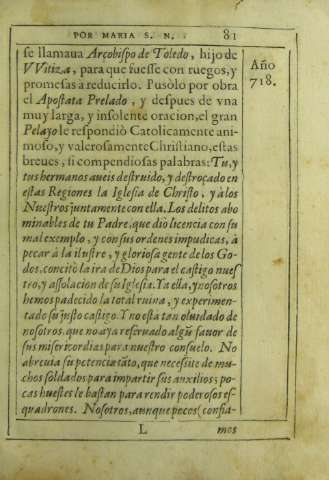 POR MARIA S. N. 81
se llamaua Arçobispo de Toledo, hijo de
VVitiza, para que fuesse con ruegos, y
promesas a reducirlo. Pusòlo por obra
el Apostata Prelado, y despues de vna
muy larga, y insolente oracion, el gran
Pelayo le respondiò Catolicamente ani-
moso, y valerosamente Christiano, estas
breues, si compendiosas palabras: Tu, y
tus hermanos aueis destruido, y destroçado en
estas Regiones la Iglesia de Christo, y à los
Nuestros juntamente con ella. Los delitos abo
minables de tu Padre, que dio licencia con su
mal exemplo, y con sus ordenes impudicas, à
pecar à la ilustre, y gloriosa gente de los Go-
dos, concitò la ira de Dios para el castigo nues
tro, y assolacion de su Iglesia. Ya ella, y nosotros
hemos padecido la total ruina, y experimen-
tado su justo castigo. Y no està tan oluidado de
nosotros, que no aya reseruado algũ fauor de
sus misericordias para nuestro consuelo. No
abreuia su potencia tãto, que necessite de mu-
chos soldados para impartir sus auxilios; po-
cas huestes le bastan para rendir poderosos es-
quadrones. Nosotros, aunque pocos, confia-
L mos
Año
718.